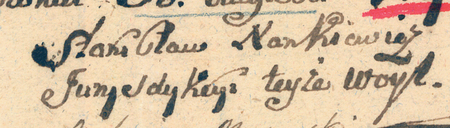 Stanisław Nankiewicz
Jurysdykcyi teyże Woyt.